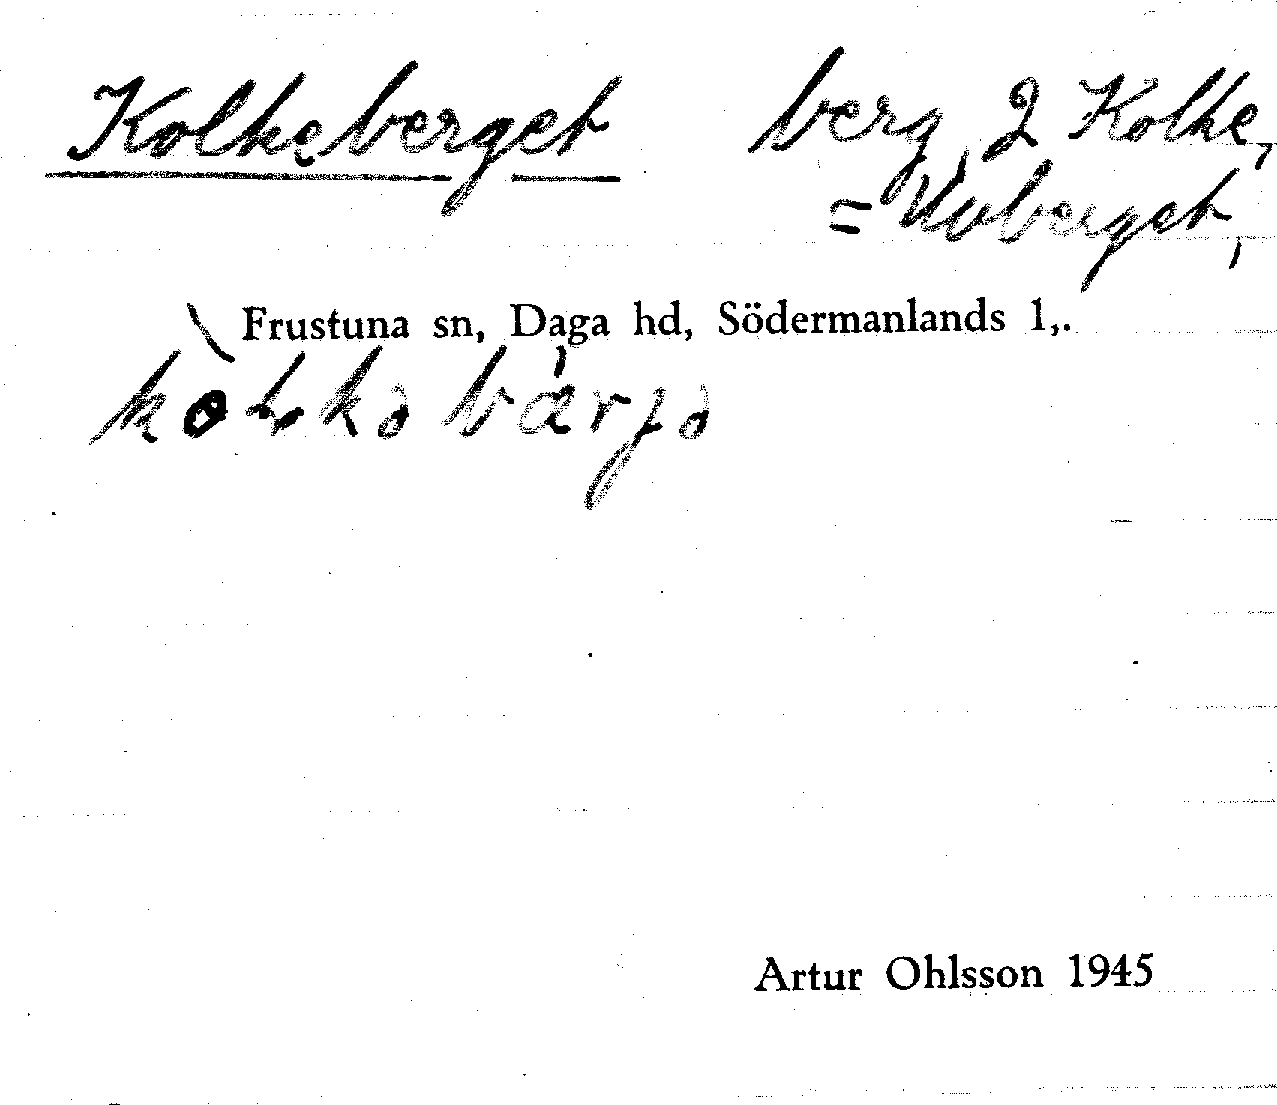 Kolkeberget berg, 2 Kolke,
= Uvberget,
Frustuna sn, Daga hd, Södermanlands l,.
Artur Ohlsson 1945